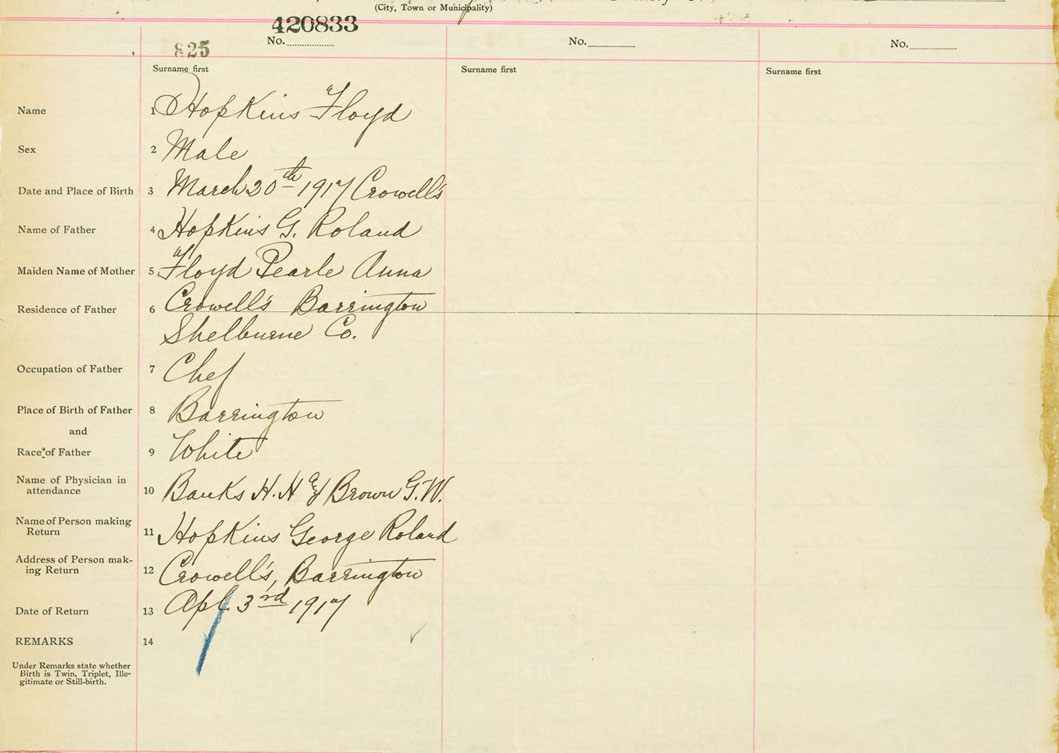 (City, Town or Municipality)
420833
No.
No.
No.
825
Surname first
Surname first
Surname first
Name 1 Hopkins Floyd
Sex 2 Male
Date and Place of Birth 3 March 20th 1917 Crowell's
Name of Father 4 Hopkins G. Roland
Maiden Name of Mother 5 Floyd Pearle Anna
Residence of Father 6 Crowell's Barrington
Shelburne Co.
Occupation of Father 7 Chef
Place of Birth of Father 8 Barrington
and
Race of Father 9 White
Name of Physician in
attendance 10 Banks H. H & Brown G. W.
Name of Person making
Return 11 Hopkins George Roland
Address of Person mak-
ing Return 12 Crowell's, Barrington
Date of Return 13 Apl 3rd 1917
REMARKS 14
Under Remarks state whether
Birth is Twin, Triplet, Ille-
gitimate or Still-birth.